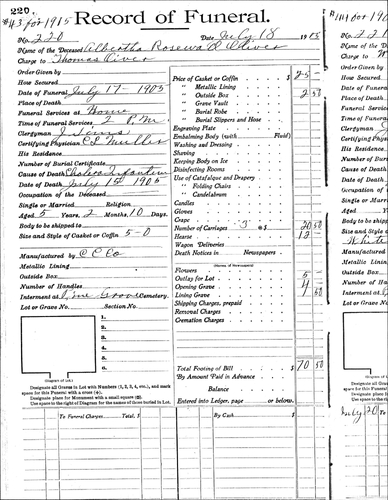 220
#43 for 1915
Record of Funeral.
No. 220
Date July 18 1915
Name of the Deceased Albertha Rosewald Oliver
Charge to Thomas
Order Given by
How Secured
Date of Funeral July 17 - 1905
Place of Death
Funeral Services at Home
Time of Funeral Services 2 P.M.
Clergyman J.
Certifying Physician
His Residence
Number of Burial Certificate
Cause of Death Cholera Infantum
Date of Death July 15th 1905
Occupation of the Deceased
Single or Married Religion
Aged 5 Years, 2 Months, 10 Days.
Body to be shipped to
Size and Style of Casket or Coffin 5-0
Manufactured by C C Co
Metallic Lining
Outside Box
Number of Handles
Interment at Pine Grove Cemetery.
Lot or Grave No. Section No.
1.
2.
3.
4.
5.
6.
(Diagram of Lot.)
Designate all Graves in Lot with Numbers (1, 2, 3, 4, etc.), and mark
space for this Funeral with a cross (+).
Designate place for Monument with a small square (□).
Use space to right of Diagram for the names of those buried in Lot.
Price of Casket or Coffin $
" Metallic Lining
" Outside Box 2 50
" Grave Vault
" Burial Robe
" Burial Slippers and Hose
Engraving Plate
Embalming Body (with Fluid)
Washing and Dressing
Shaving
Keeping Body on Ice
Disinfecting Rooms
Use of Catafalque and Drapery
" Folding Chairs
" Candelabrum
Candles
Gloves
Crape
Number of Carriages 3 @ $ 20 50
Hearse 12
Wagon Deliveries
Death Notices in Newspapers
(Names of Newspapers)
Flowers
Outlay for Lot 5 -
Opening Grave 4 -
Lining Grave 1 50
Shipping Charges, prepaid
Removal Charges
Cremation Charges
Total Footing of Bill $ 70 50
By Amount Paid in Advance
Balance
Entered into Ledger, page or below.
To Funeral Charges Total, $
By Cash $